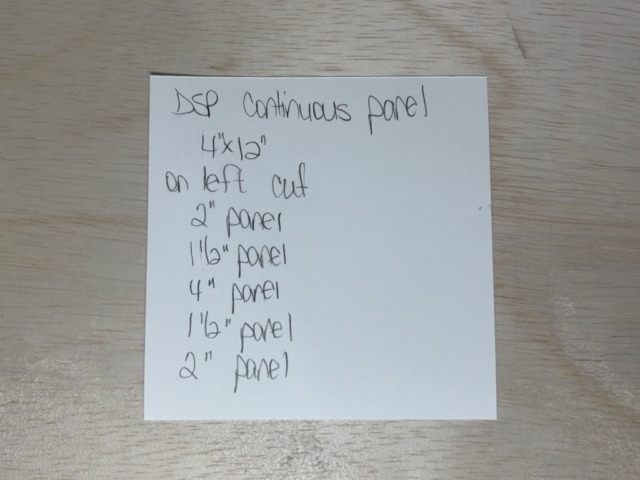 DSP Continuous panel
4"x12"
on left cut
2" panel
1 1/2" panel
4" panel
1 1/2" panel
2" panel